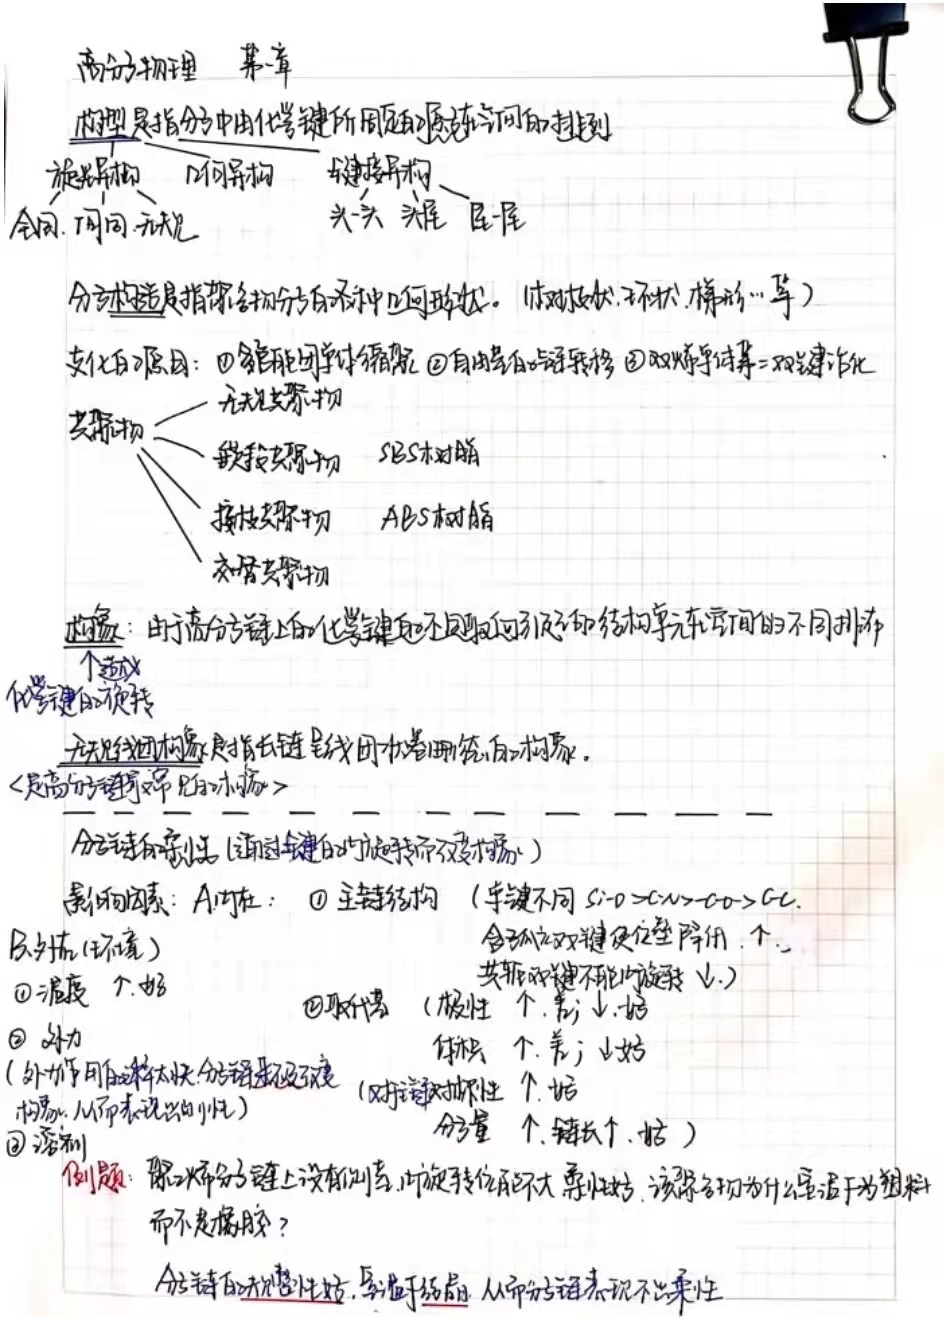 高分子物理 第一章
构型是指分子中由化学键所固定的原子在空间的排列
旋光异构 几何异构 键接异构
全同.间同.无规 头-头 头尾 尾-尾
分子构造是指聚合物分子的各种几何形状。(体对枝状.环状.梯形…等)
变化的原因：①多官能团单体缩聚 ②自由基的链转移 ③双烯单体第二双键活化
共聚物 无规共聚物
嵌段共聚物 SBS树脂
接枝共聚物 ABS树脂
交替共聚物
构象：由于高分子链上的化学键的不同取向引起的结构单元在空间的不同排布
↑造成
化学键的旋转
无规线团构象是指长链呈线团状卷曲的构象。
<是高分子链最常见的构象>
分子链的柔性(通过键的内旋转而改变构象)
影响因素：A.内在：①主链结构 (单键不同 Si-O>C-N>C-O>C-C.
B.外在(环境) 含孤立双键使位垒降低.↑.
①温度 ↑.好 共轭双键不能内旋转 ↓.)
②取代基 (极性 ↑.差；↓.好
②外力 体积 ↑.差；↓好
(外力作用的速率太快.分子链来不及改变 (对主链对称性 ↑.好
构象.从而表现出刚性) 分子量 ↑.链长↑.好)
③溶剂
例题：聚乙烯分子链上没有侧基,内旋转位能不大,柔性好.该聚合物为什么室温下为塑料
而不是橡胶？
分子链的规整性好.室温下结晶.从而分子链表现不出柔性